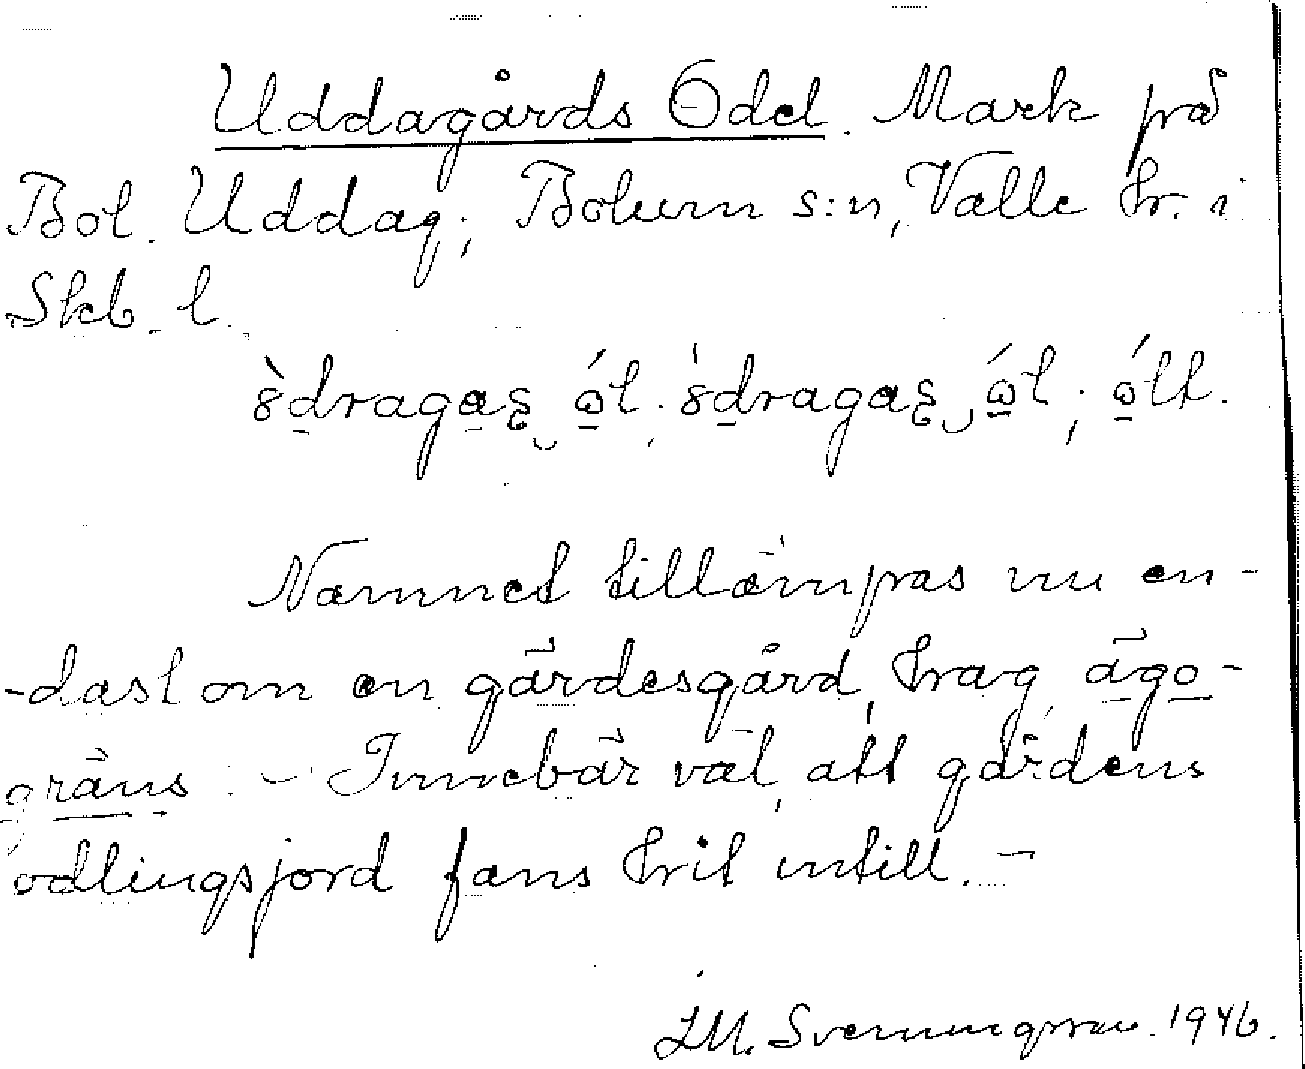 Uddagårds Odel. Mark på
Bol. Uddag; Bolum s:n, Valle hr. i
Skb. l.
Namnet tillämpas nu en-
-dast om en gärdesgård, ägo-
gräns. – Innebär väl, att gårdens
odlingsjord fans hit intill. –
Svenungsson. 1946.